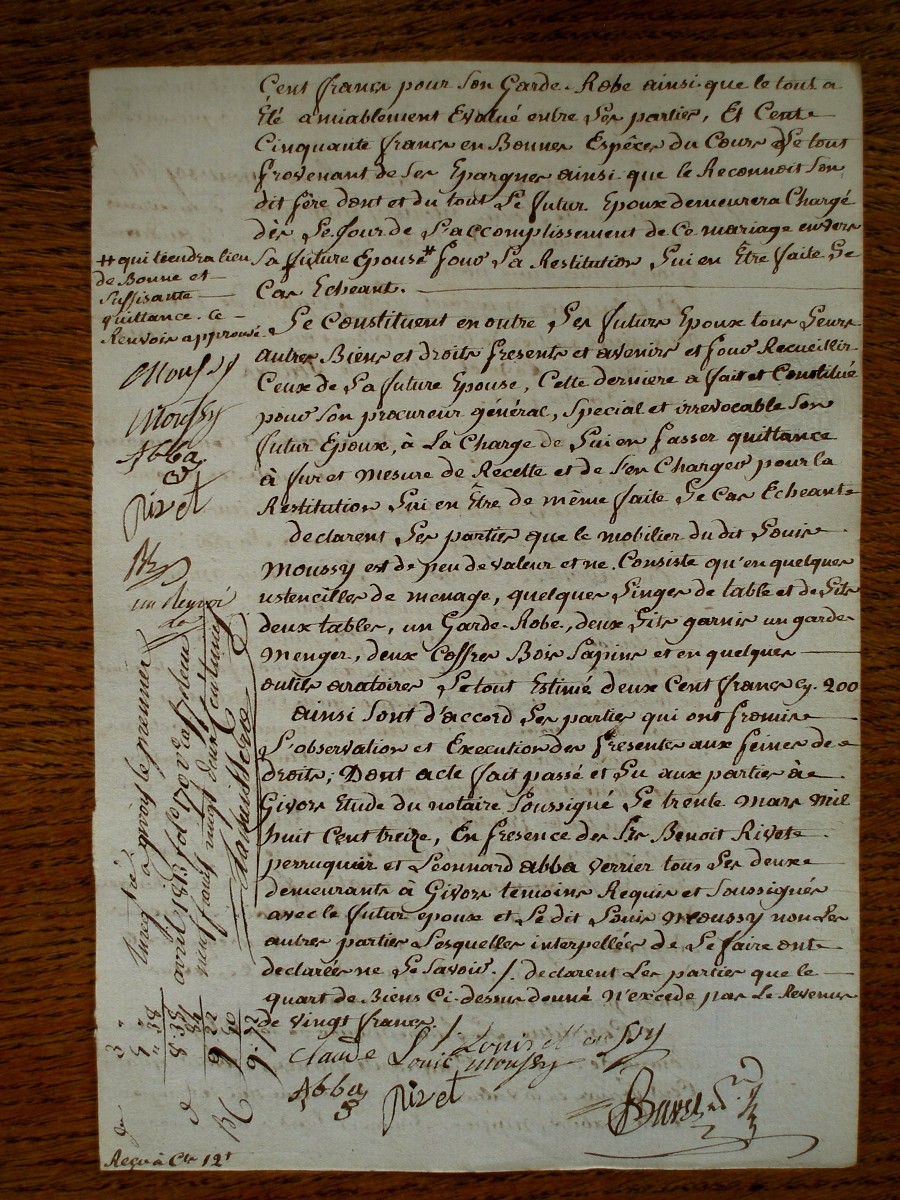 Cent francs pour son Garde-Robe ainsi que le tout a
Été amiablement Evalué entre Les parties, Et Cent
Cinquante francs en Bonnes Espèces du Cours Le tout
Provenant de Ses Epargnes ainsi que le Reconnoit Son
dit Père dont et du tout Le futur Epoux demeurera Chargé
dès Le Jour de L'accomplissement de Ce mariage envers
La future Epouse # pour La Restitution Lui en Être faite Le
Cas Echeant.
# qui tiendra lieu
de Bonne et
Suffisante
quittance. Ce
Renvois approuvé
Moussy
Moussy
Abba
Rivet
Se Constituent en outre Les futurs Epoux tous Leurs
autres Biens et droits Presents et avenirs et pour Recueillir
Ceux de La future Epouse, Cette derniere a fait et Constitué
pour Son procureur général, Special et irrevocable Son
futur Epoux, à La Charge de Lui en Passer quittance
à fur et mesure de Recette et de S'en Charger pour la
Restitution Lui en Être de même faite Le Cas Echeant
declarent Les parties que le mobilier du dit Louis
Moussy est de peu de valeur et ne Consiste qu'en quelques
ustencilles de menage, quelques Linges de table et de Lits
deux tables, un Garde-Robe, deux Lits garnis un garde
menger, deux Coffres Bois Sapins et en quelques
outils aratoires Le tout Estimé deux Cent francs cy. 200
ainsi Sont d'accord Les parties qui ont Promis
L'observation et Execution des Presentes aux Peines de
droits; Dont acte fait passé et Lu aux parties à
Givors Etude du notaire Soussigné Le trente Mars Mil
huit Cent treize, En Presence des Srs Benoit Rivet
perruquier et Léonnard Abba verrier tous Les deux
demeurants à Givors témoins Requis et Soussignés
avec le futur epoux et Le dit Louis Moussy non Les
autres parties Lesquelles interpellées de Le faire ont
declarées ne Le Savoir. /. declarent Les parties que le
quart de Biens Ci-dessus donné n'excede pas Le Revenus
de vingt francs. /.
Claude Louis Moussy
Louis Moussy
Abba
Rivet
un Renvoi
Enregistré à Givors le premier
avril 1813 fol.
neuf francs vingt deux centimes
9.22
Reçu à Cte 12f